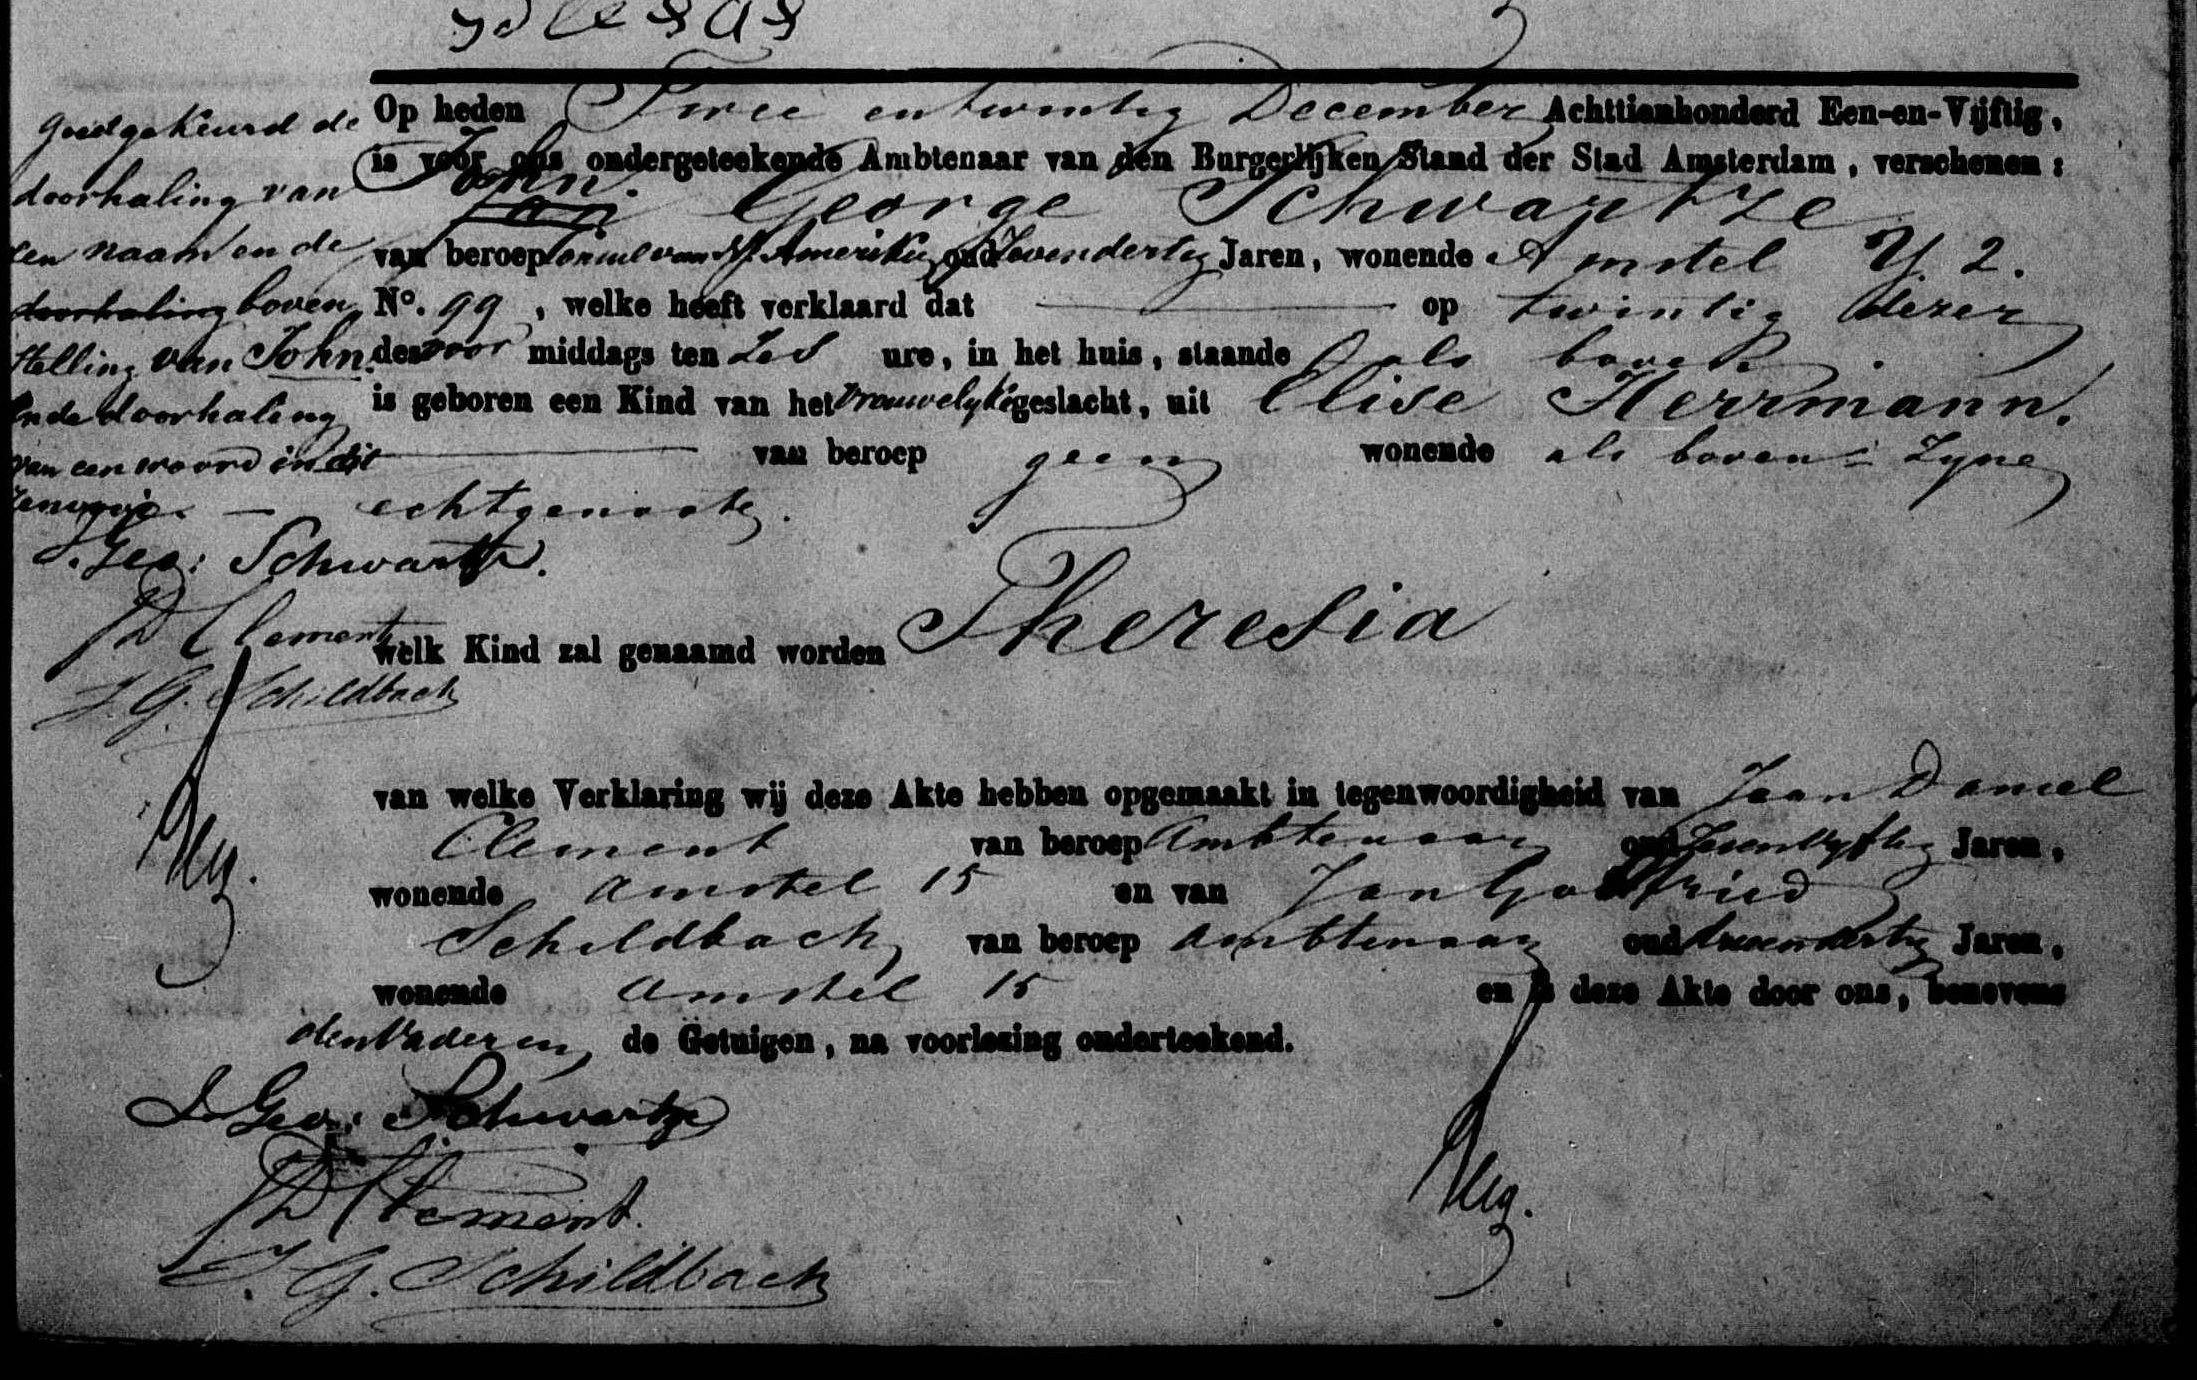 Op heden Twee entwintig December Achttienhonderd Een-en-Vijftig,
is voor ons ondergeteekende Ambtenaar van den Burgerlijken Stand der Stad Amsterdam, verschenen:
John
Jan George Schwartze
van beroep Consul van N. Amerika oud Zevendertig Jaren, wonende Amstel Y. 2.
No. 99, welke heeft verklaard dat op twintig dezer
des voor middags ten Zes ure, in het huis, staande als boven.
is geboren een Kind van het vrouwelyke geslacht, uit Elise Herrmann.
van beroep geen wonende als boven Zyne
echtgenoote.
welk Kind zal genaamd worden Theresia
van welke Verklaring wij deze Akte hebben opgemaakt in tegenwoordigheid van Jean Daniel
Clement van beroep Ambtenaar oud Zesenvyftig Jaren,
wonende Amstel 15 en van Jan Gottfried
Schildbach van beroep Ambtenaar oud drieendertig Jaren,
wonende Amstel 15 en is deze Akte door ons, benevens
den Vader en de Getuigen, na voorlezing onderteekend.
J Geo: Schwartze
JD Clement.
J. G. Schildbach
goedgekeurd de
doorhaling van
een naam en de
doorhaling boven
stelling van John.
en de doorhaling
van een woord in dit
renvooi.
J. Geo: Schwartze.
JD Clement
J. G. Schildbach